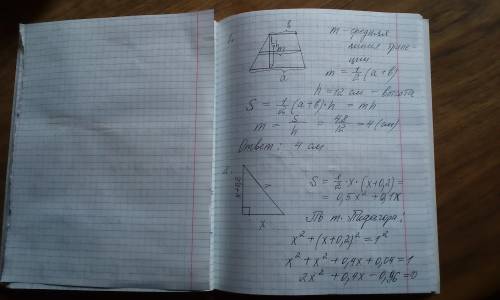 1.
b
h
m
a
m - средняя
линия трапе-
ции
m = 1/2 (a+b)
h = 12 см - высота
S = 1/2 (a+b)·h = mh
m = S/h = 48/12 = 4 (см)
Ответ: 4 см
2.
x+0,2
1
x
S = 1/2·x·(x+0,2) =
= 0,5x² + 0,1x
По т. Пифагора:
x² + (x+0,2)² = 1²
x² + x² + 0,4x + 0,04 = 1
2x² + 0,4x - 0,96 = 0